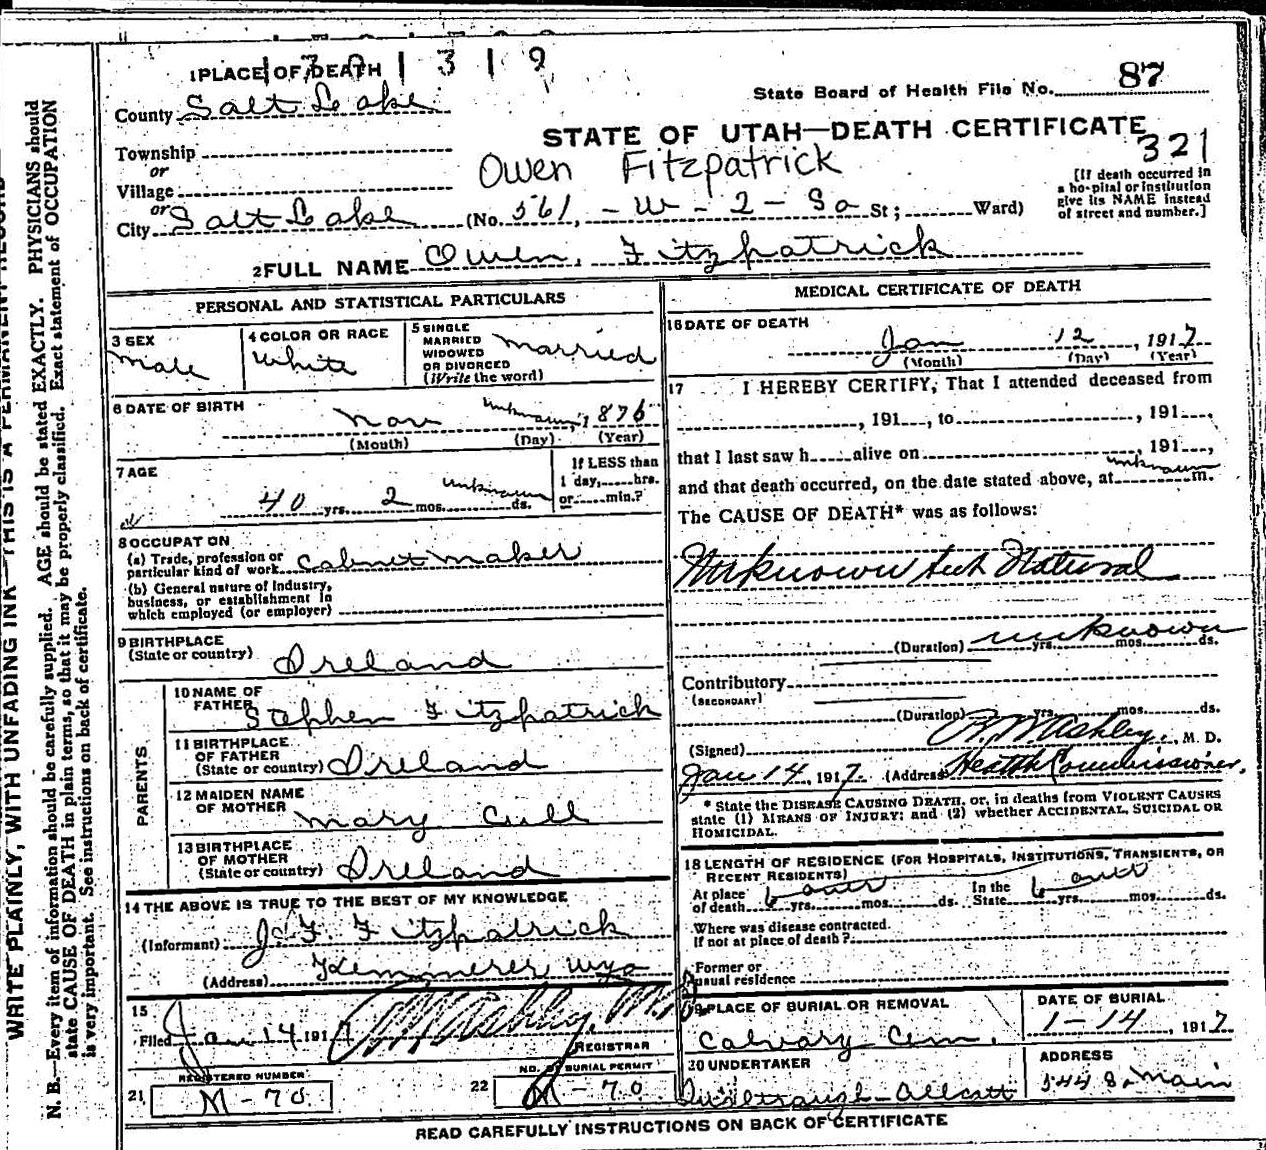 1 PLACE OF DEATH 1 3 1 9
State Board of Health File No. 87
County Salt Lake
STATE OF UTAH—DEATH CERTIFICATE
321
Township
or
Village
Owen Fitzpatrick
[If death occurred in a hospital or institution give its NAME instead of street and number.]
or
City Salt Lake (No. 561, - W - 2 - So St; Ward)
2 FULL NAME Owen, Fitzpatrick
PERSONAL AND STATISTICAL PARTICULARS
3 SEX
Male
4 COLOR OR RACE
White
5 SINGLE
MARRIED
WIDOWED
OR DIVORCED
(Write the word)
Married
6 DATE OF BIRTH
Nov unknown, 1876
(Month) (Day) (Year)
7 AGE
40 yrs. 2 mos. unknown ds.
If LESS than
1 day, hrs.
or min.?
8 OCCUPATION
(a) Trade, profession or
particular kind of work Cabnet Maker
(b) General nature of industry,
business, or establishment in
which employed (or employer)
9 BIRTHPLACE
(State or country) Ireland
PARENTS
10 NAME OF
FATHER Stephen Fitzpatrick
11 BIRTHPLACE
OF FATHER
(State or country) Ireland
12 MAIDEN NAME
OF MOTHER Mary Cull
13 BIRTHPLACE
OF MOTHER
(State or country) Ireland
14 THE ABOVE IS TRUE TO THE BEST OF MY KNOWLEDGE
(Informant) J. F. Fitzpatrick
(Address) Kemmerer Wyo
15
Filed Jan 14 1917 Ashley, M.D.
REGISTRAR
REGISTERED NUMBER
21 M - 70
NO. OF BURIAL PERMIT
22 M - 70
MEDICAL CERTIFICATE OF DEATH
16 DATE OF DEATH
Jan 12, 1917
(Month) (Day) (Year)
17 I HEREBY CERTIFY, That I attended deceased from
, 191 , to , 191 ,
that I last saw h alive on , 191 ,
and that death occurred, on the date stated above, at unknown m.
The CAUSE OF DEATH* was as follows:
Unknown but Natural
(Duration) unknown yrs. mos. ds.
Contributory
(SECONDARY)
(Duration) yrs. mos. ds.
(Signed) Ashley, M. D.
Jan 14 1917. (Address) Health Commissioner.
* State the DISEASE CAUSING DEATH, or, in deaths from VIOLENT CAUSES
state (1) MEANS OF INJURY; and (2) whether ACCIDENTAL, SUICIDAL OR
HOMICIDAL.
18 LENGTH OF RESIDENCE (FOR HOSPITALS, INSTITUTIONS, TRANSIENTS, OR
RECENT RESIDENTS)
At place
of death 6 over yrs. mos. ds.
In the
State 6 over yrs. mos. ds.
Where was disease contracted.
If not at place of death?
Former or
usual residence
19 PLACE OF BURIAL OR REMOVAL
Calvary Cem.
DATE OF BURIAL
1-14, 1917
20 UNDERTAKER
ADDRESS
544 S. Main
READ CAREFULLY INSTRUCTIONS ON BACK OF CERTIFICATE
WRITE PLAINLY, WITH UNFADING INK—THIS IS A PERMANENT RECORD
N. B.—Every item of information should be carefully supplied. AGE should be stated EXACTLY. PHYSICIANS should
state CAUSE OF DEATH in plain terms, so that it may be properly classified. Exact statement of OCCUPATION
is very important. See instructions on back of certificate.